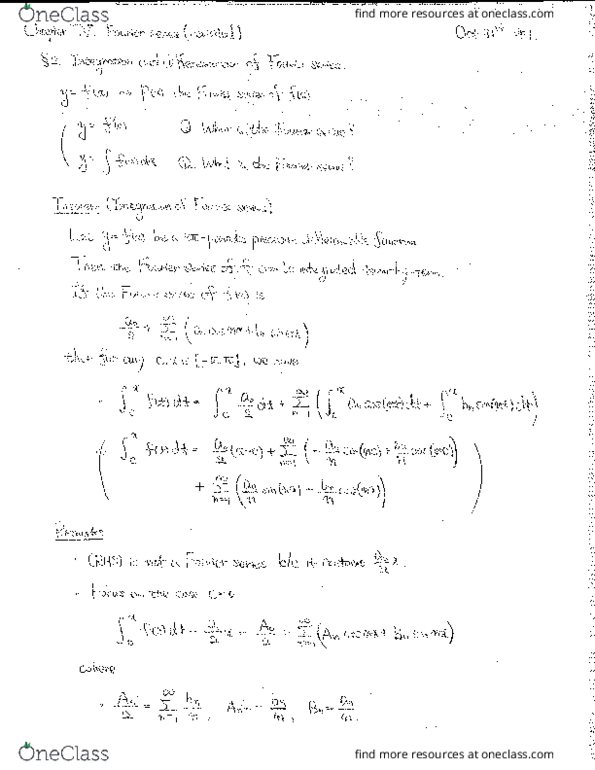 OneClass find more resources at oneclass.com
Chapter IV. Fourier series (
Oct 31st
§2. Integration and differentiation of Fourier series.
y = f(x) the Fourier series of f(x)
y = f'(x) Q. What is the Fourier series?
y = ∫ f(x)dx Q. What is the Fourier series?
Theorem (Integration of Fourier series)
Let y = f(x) be a 2π-periodic piecewise differentiable function
Then the Fourier series of f can be integrated term-by-term.
If the Fourier series of f(x) is
a₀/2 + ∑
then for any c, x ∈ [-π, π], we have
∫_c^x f(t)dt = ∫_c^x a₀/2 dt + ∑_{n=1}^∞ ( ∫_c^x aₙ cos(nt)dt + ∫_c^x bₙ sin(nt)dt )
∫_c^x f(t)dt = a₀/2 (x-c) + ∑_{n=1}^∞
+ ∑_{n=1}^∞ ( aₙ/n sin(nx) - bₙ/n cos(nx) )
Remarks
· (RHS) is not a Fourier series b/c it contains a₀/2 x.
· Focus on the case c=0
∫_0^x f(t)dt - a₀/2 x = A₀/2 + ∑_{n=1}^∞ (Aₙ cos nx + Bₙ sin nx)
where
· A₀/2 = ∑_{n=1}^∞ bₙ/n, Aₙ = - bₙ/n, Bₙ = aₙ/n.
OneClass find more resources at oneclass.com